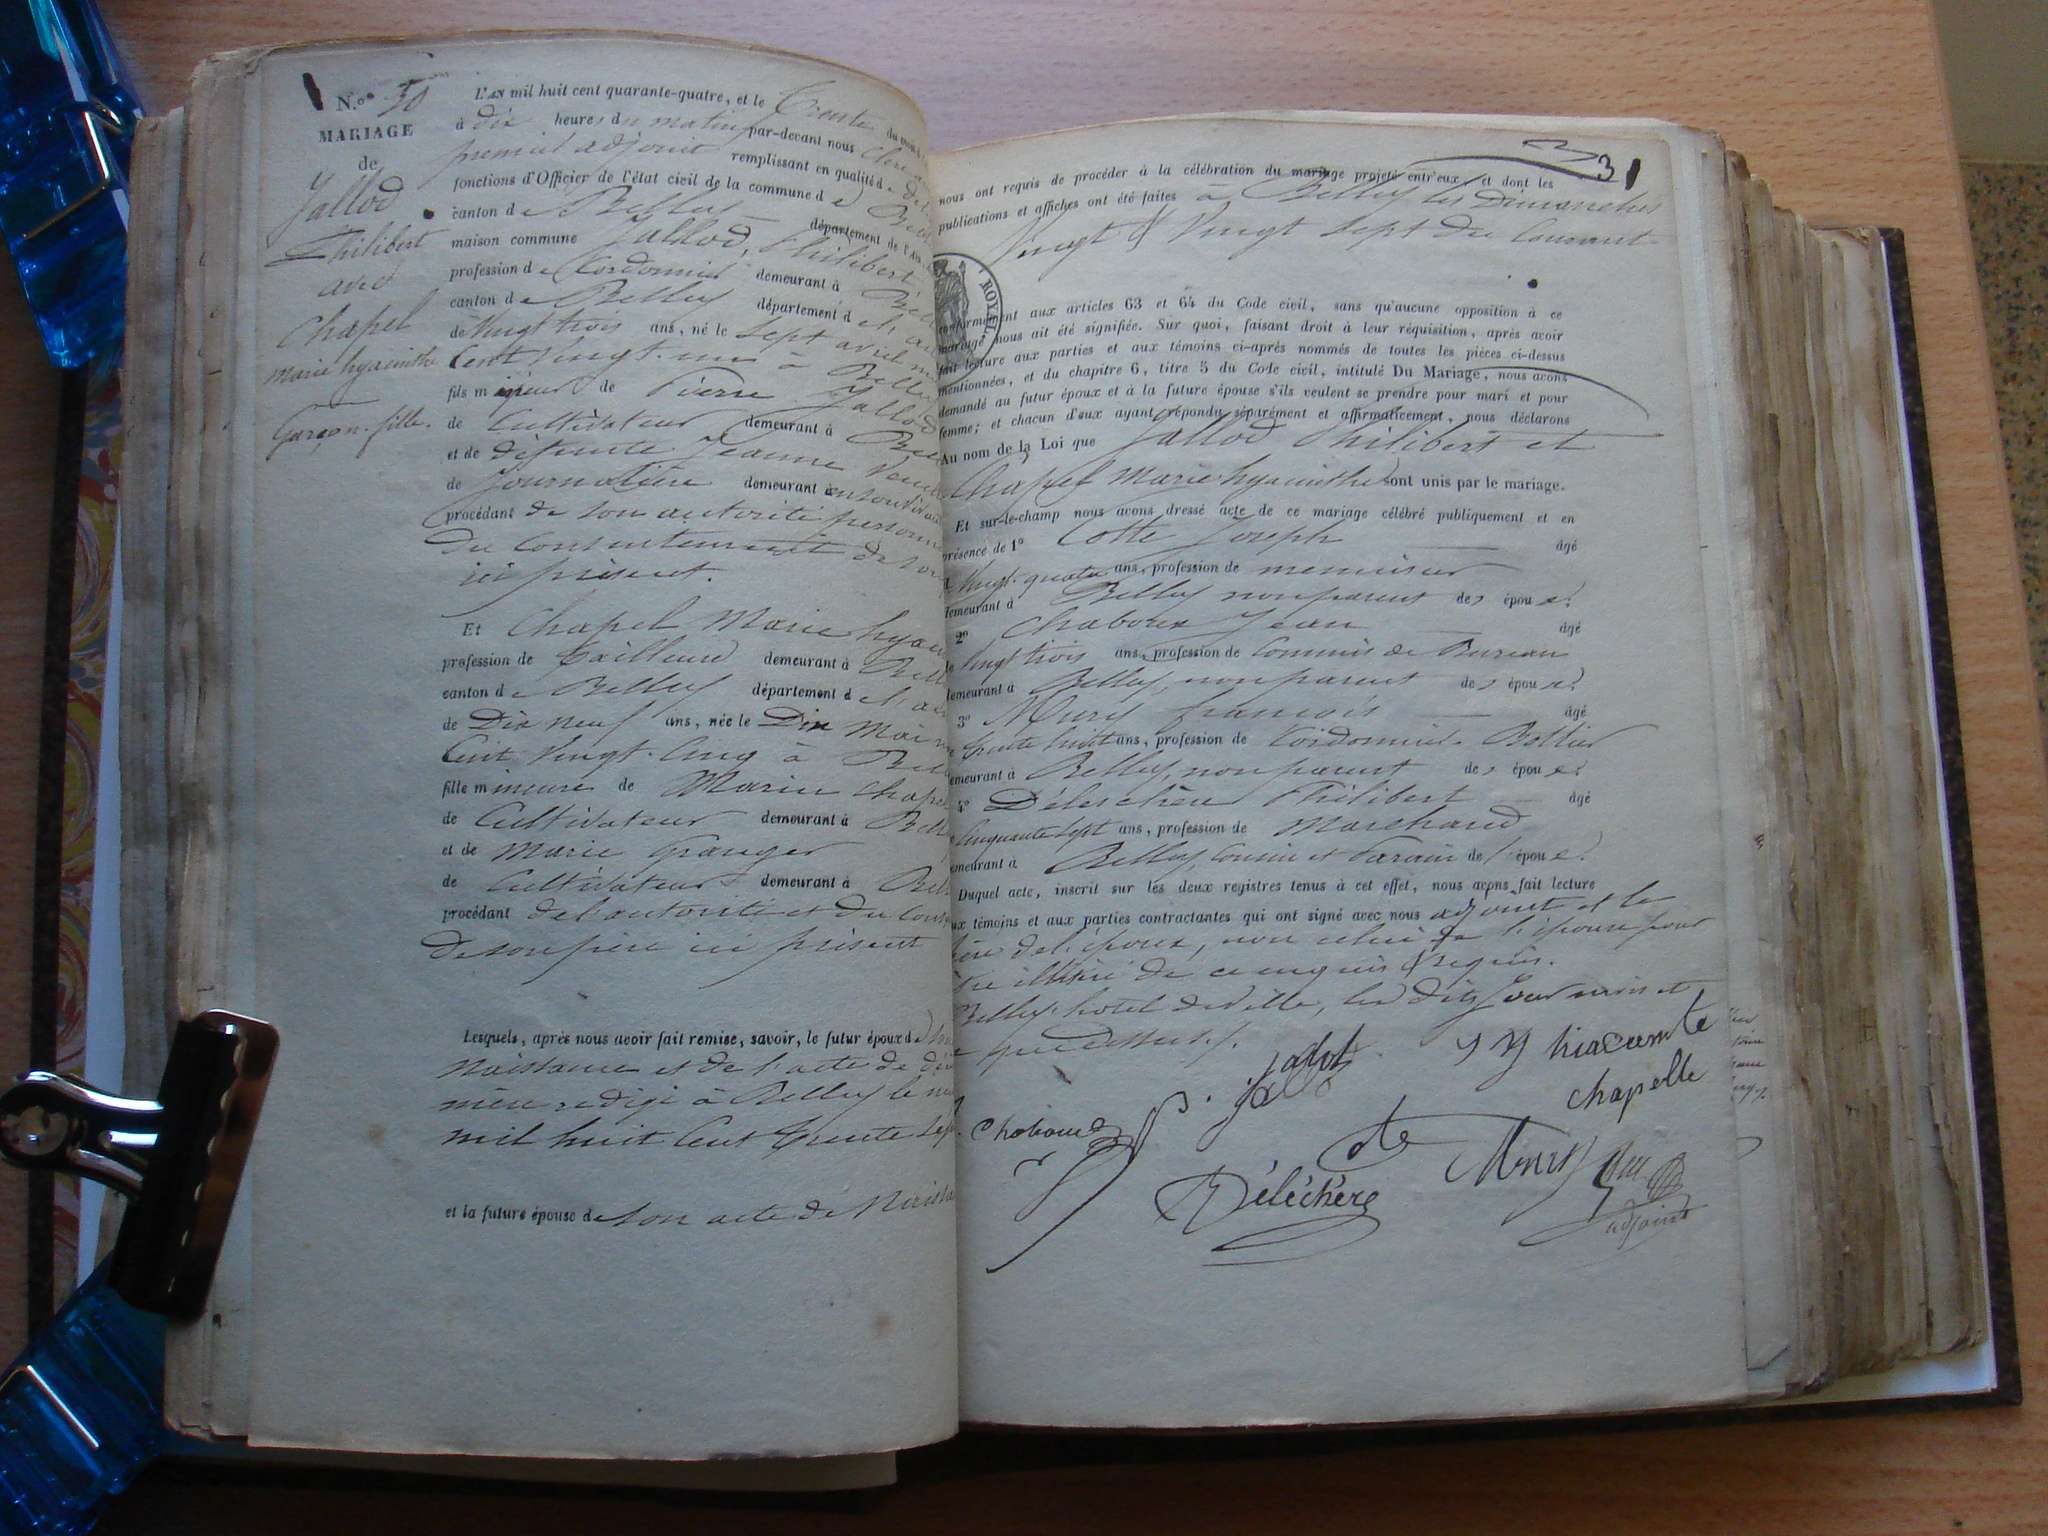 N.º 50
MARIAGE
de
Jallod
Philibert
avec
Chapel
marie hyacinthe
Garçon. fille.
L'AN mil huit cent quarante-quatre, et le Trente du mois
à dix heures du matin par-devant nous Clerc
premier adjoint remplissant en qualité de
fonctions d'Officier de l'état civil de la commune de
canton de Belley département de l'
maison commune Jallod, Philibert
profession de Cordonnier demeurant à
canton de Belley département de
de vingt trois ans, né le sept avril
Cent vingt-un à Belley
fils mineur de Pierre Jallod
de Cultivateur demeurant à
et de défunte Jeanne
de Journalière demeurant
procédant de son autorité
du Consentement de son
ici présent.
Et Chapel Marie
profession de Tailleuse demeurant à
canton de Belley département de l'
de Dix neuf ans, née le Dix Mai
Cent vingt-Cinq à
fille mineure de Marin Chapel
de Cultivateur demeurant à
et de Marie Granger
de Cultivateur demeurant à
procédant de l'autorité et du
de son père ici présent
Lesquels, après nous avoir fait remise, savoir, le futur époux de
Naissance et de l'acte de
mère rédigé à Belley le
mil huit Cent trente
et la future épouse de son acte de
31
nous ont requis de procéder à la célébration du mariage projeté entr'eux, et dont les
publications et affiches ont été faites à Belley les dimanches
Vingt & Vingt sept du Courant
ROYAL
conformément aux articles 63 et 64 du Code civil, sans qu'aucune opposition à ce
mariage nous ait été signifiée. Sur quoi, faisant droit à leur réquisition, après avoir
fait lecture aux parties et aux témoins ci-après nommés de toutes les pièces ci-dessus
mentionnées, et du chapitre 6, titre 5 du Code civil, intitulé Du Mariage, nous avons
demandé au futur époux et à la future épouse s'ils veulent se prendre pour mari et pour
femme; et chacun d'eux ayant répondu séparément et affirmativement, nous déclarons
Au nom de la Loi que Jallod Philibert et
Chapel Marie hyacinthe sont unis par le mariage.
Et sur-le-champ nous avons dressé acte de ce mariage célébré publiquement et en
présence de 1º Cotte Joseph âgé
vingt-quatre ans, profession de menuisier
demeurant à Belley non parent des époux.
2º Chaboux Jean âgé
vingt trois ans, profession de Commis de Bureau
demeurant à Belley, non parent des époux.
3º Mury françois âgé
trente huit ans, profession de Cordonnier-Bottier
demeurant à Belley, non parent des époux.
4º Délechère Philibert âgé
Cinquante sept ans, profession de Marchand
demeurant à Belley, Cousin et Parain de l'époux.
Duquel acte, inscrit sur les deux registres tenus à cet effet, nous avons fait lecture
aux témoins et aux parties contractantes qui ont signé avec nous adjoint et le
père de l'époux, non celui de l'épouse pour
être illitéré de ce enquis & requis.
Belley hotel de ville, les dits Jour mois et
que dessus.
jalot
hiacinte
chapelle
P. jallod
Chaboux
Cotte
Délechère
Mury
adjoint